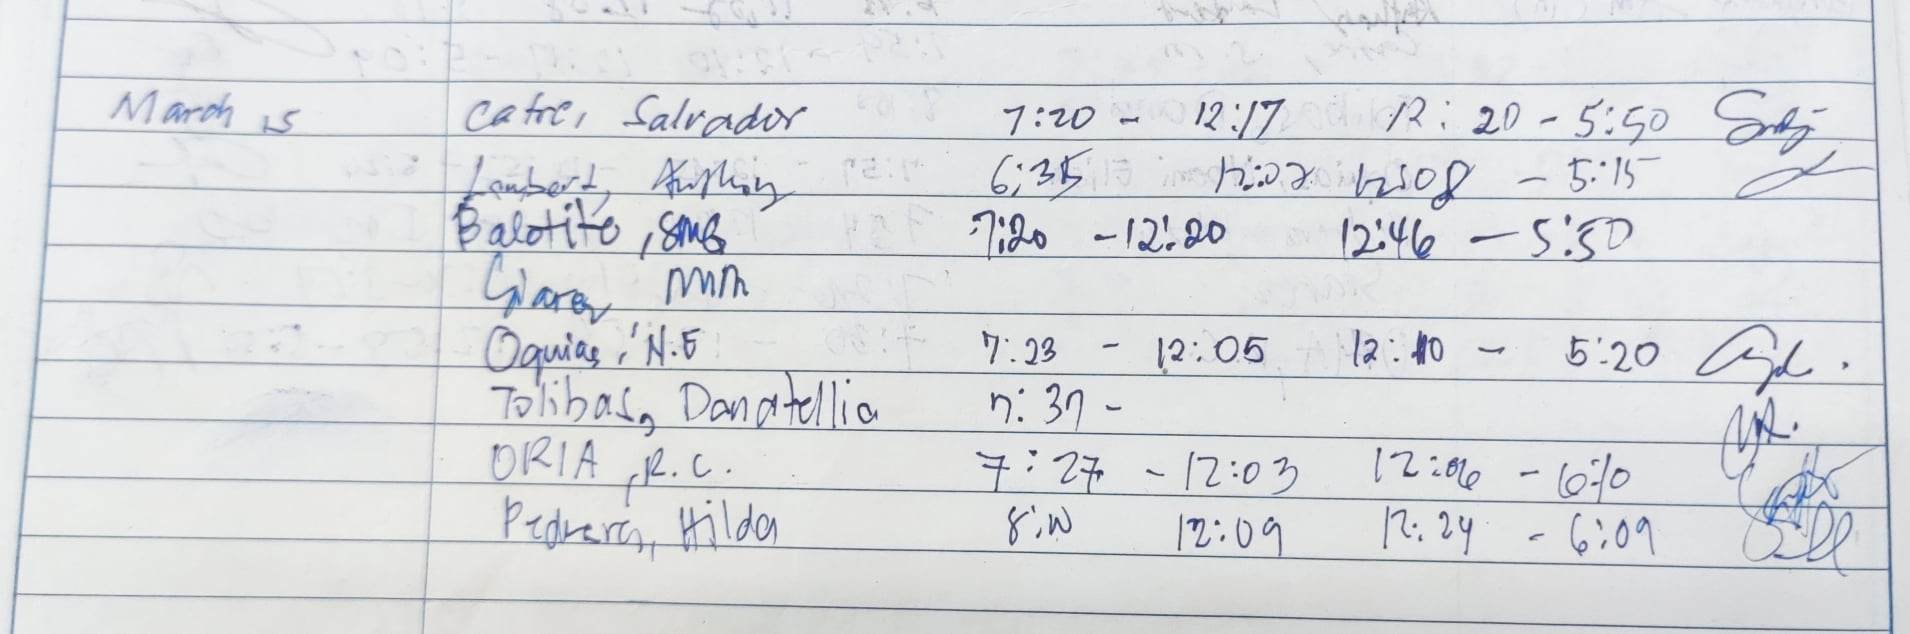 March 15 Catre, Salvador 7:20 - 12:17 12:20 - 5:50
Lambert, Anthony 6:35 12:02 12:08 - 5:15
Balotite, SMB 7:20 - 12:20 12:46 - 5:50
Oquias, N.E 7:23 - 12:05 12:10 - 5:20
Tolibas, Danatellia 7:37 -
ORIA, R.C. 7:27 - 12:03 12:06 - 6:10
Pedrera, Hilda 8:10 12:09 12:24 - 6:09